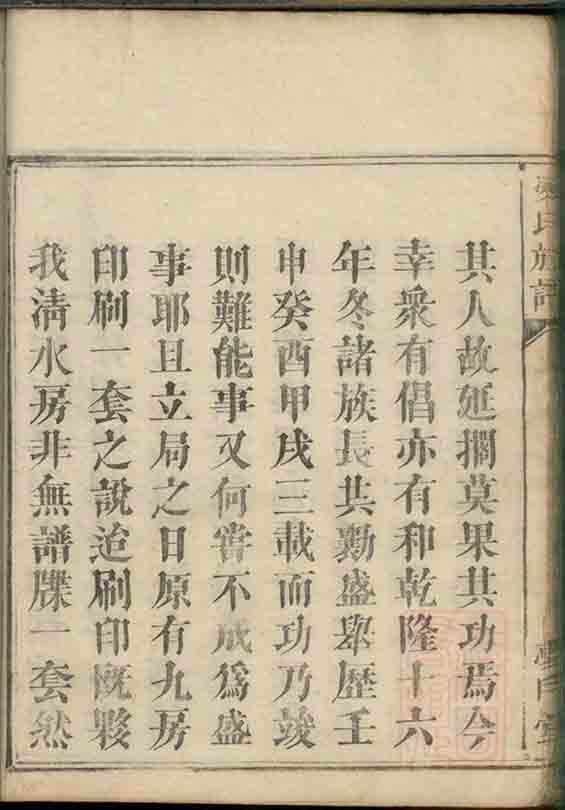 其人故延擱莫果其功焉今
幸衆有倡亦有和乾隆十六
年冬諸族長共勷盛舉歷壬
申癸酉甲戌三載而功乃竣
則難能事又何嘗不成爲盛
事耶且立局之日原有九房
印刷一套之說迨刷印旣夥
我清水房非無譜牒一套然